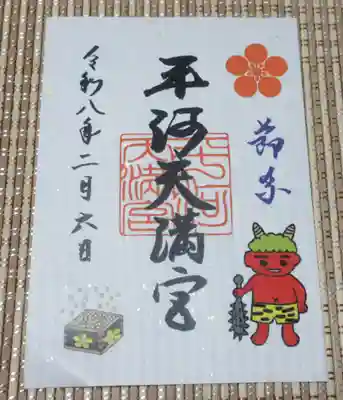 節分
平河天満宮
令和八年二月六日